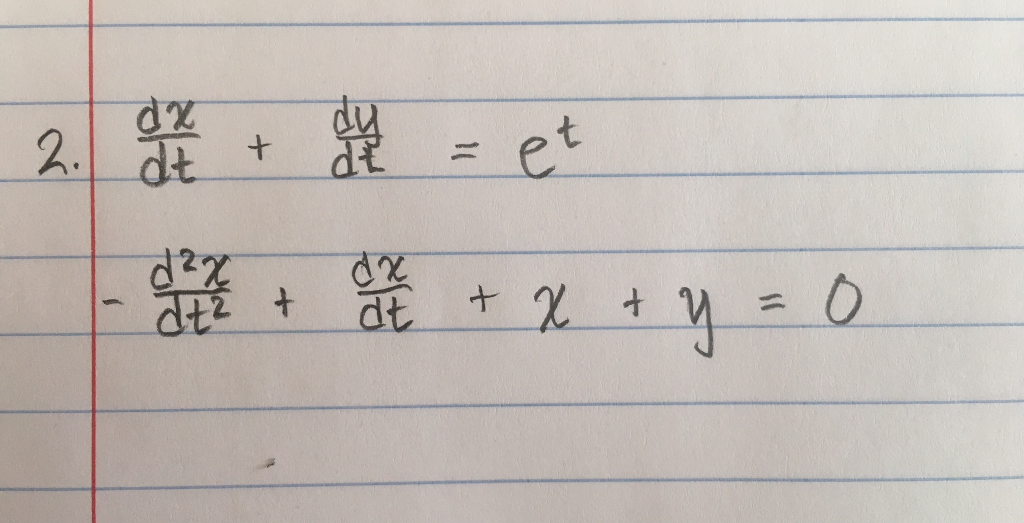 2. dx/dt + dy/dt = e^t
- d²x/dt² + dx/dt + x + y = 0